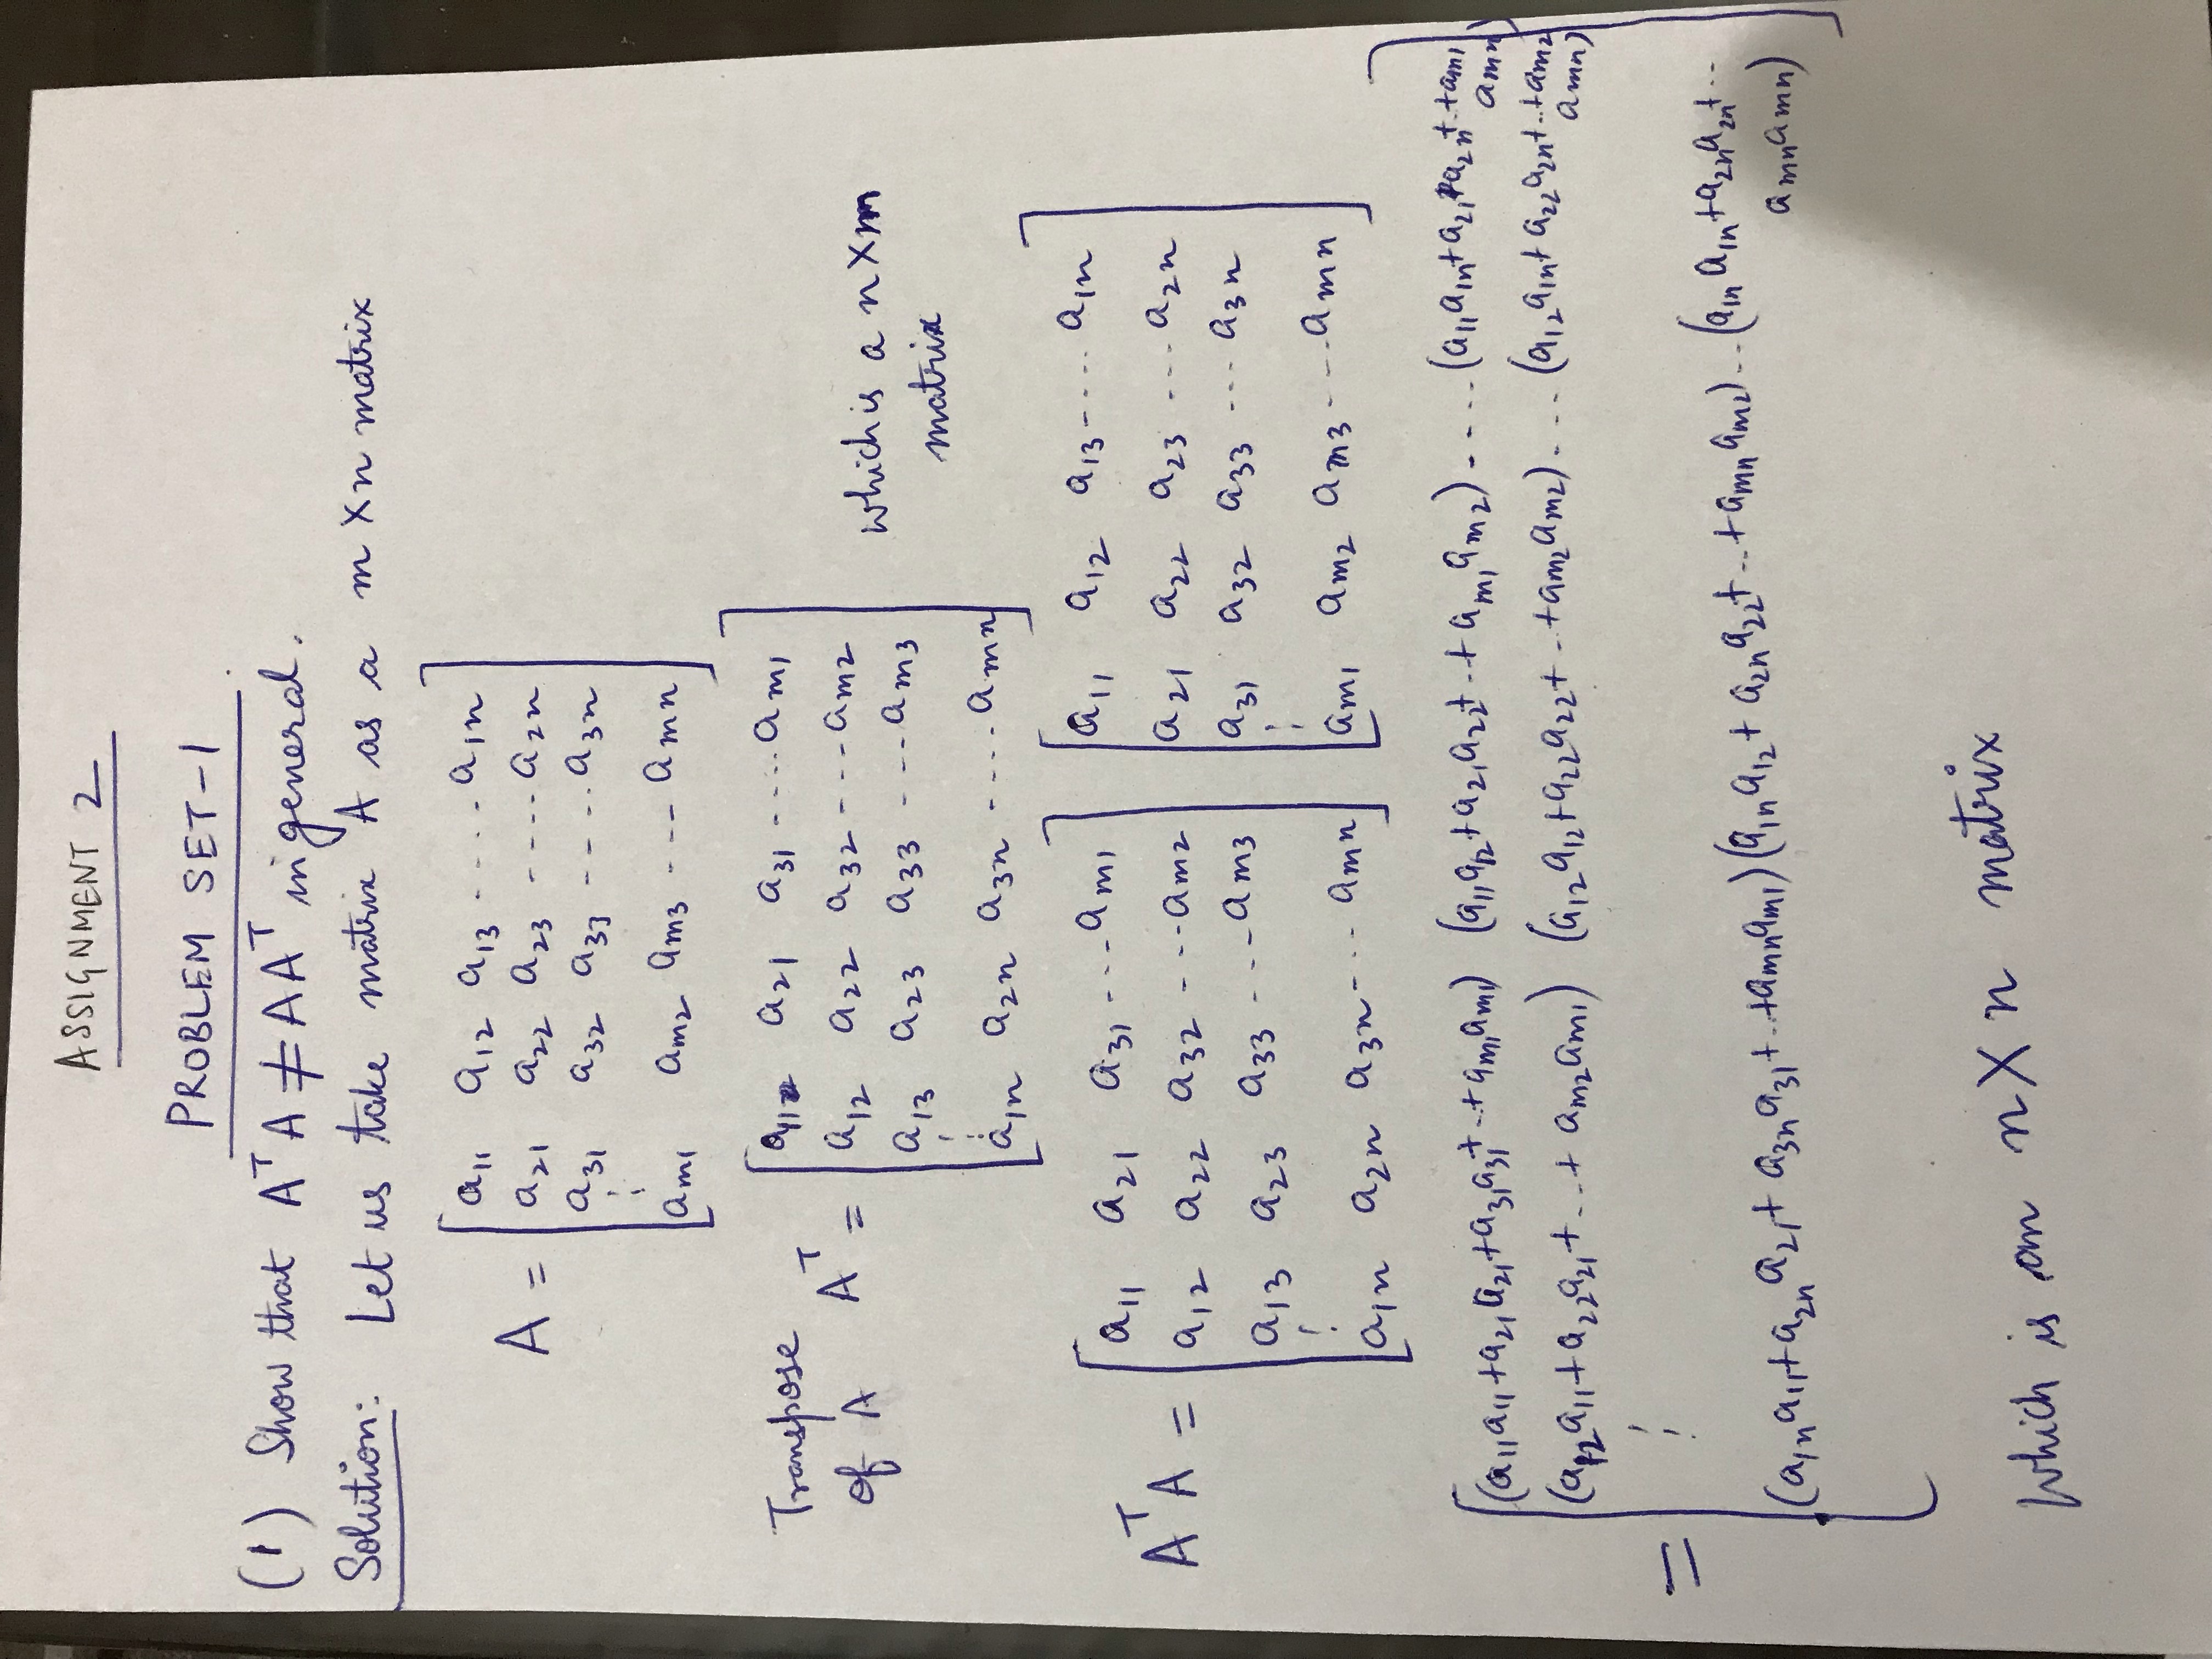 ASSIGNMENT 2
PROBLEM SET-1
(1) Show that Aᵀ A ≠ A Aᵀ in general.
Solution: Let us take matrix A as a m X n matrix
A = [ a₁₁ a₁₂ a₁₃ ..... a₁ₙ
a₂₁ a₂₂ a₂₃ ..... a₂ₙ
a₃₁ a₃₂ a₃₃ ..... a₃ₙ
⋮
aₘ₁ aₘ₂ aₘ₃ .... aₘₙ ]
Transpose of A Aᵀ = [ a₁₁ a₂₁ a₃₁ ..... aₘ₁
a₁₂ a₂₂ a₃₂ .... aₘ₂
a₁₃ a₂₃ a₃₃ .... aₘ₃
⋮
a₁ₙ a₂ₙ a₃ₙ ..... aₘₙ ]
which is a n X m
matrix
AᵀA = [ a₁₁ a₂₁ a₃₁ .... aₘ₁ ] [ a₁₁ a₁₂ a₁₃ ..... a₁ₙ ]
a₁₂ a₂₂ a₃₂ .... aₘ₂ a₂₁ a₂₂ a₂₃ .... a₂ₙ
a₁₃ a₂₃ a₃₃ .... aₘ₃ a₃₁ a₃₂ a₃₃ .... a₃ₙ
⋮ ⋮
a₁ₙ a₂ₙ a₃ₙ .... aₘₙ aₘ₁ aₘ₂ aₘ₃ ..... aₘₙ
= [ (a₁₁a₁₁+a₂₁a₂₁+a₃₁a₃₁+..+aₘ₁aₘ₁) (a₁₁a₁₂+a₂₁a₂₂+..+aₘ₁aₘ₂)..... (a₁₁a₁ₙ+a₂₁a₂ₙ+..+aₘ₁
aₘₙ)
(a₁₂a₁₁+a₂₂a₂₁+...+aₘ₂aₘ₁) (a₁₂a₁₂+a₂₂a₂₂+..+aₘ₂aₘ₂).... (a₁₂a₁ₙ+a₂₂a₂ₙ+..+aₘ₂
aₘₙ)
⋮
(a₁ₙa₁₁+a₂ₙa₂₁+a₃ₙa₃₁+..+aₘₙaₘ₁) (a₁ₙa₁₂+a₂ₙa₂₂+..+aₘₙaₘ₂)... (a₁ₙa₁ₙ+a₂ₙa₂ₙ+...
aₘₙaₘₙ) ]
Which is an n X n matrix